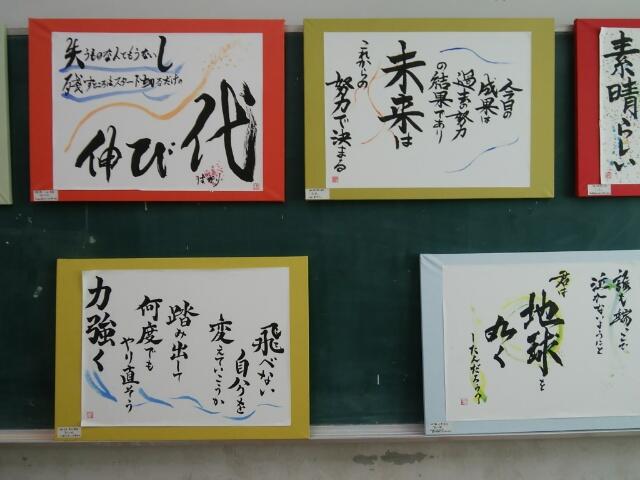 失うものなんてもうないし
残すところはスタート切るだけの
伸び代
ばかり
今日の
成果は
過去の努力
の結果であり
未来は
これからの
努力で決まる
素晴らしい
飛べない
自分を
変えていこうか
踏み出して
何度でも
やり直そう
力強く
誰も端っこで
泣かないようにと
君は
地球を
丸く
したんだろう?